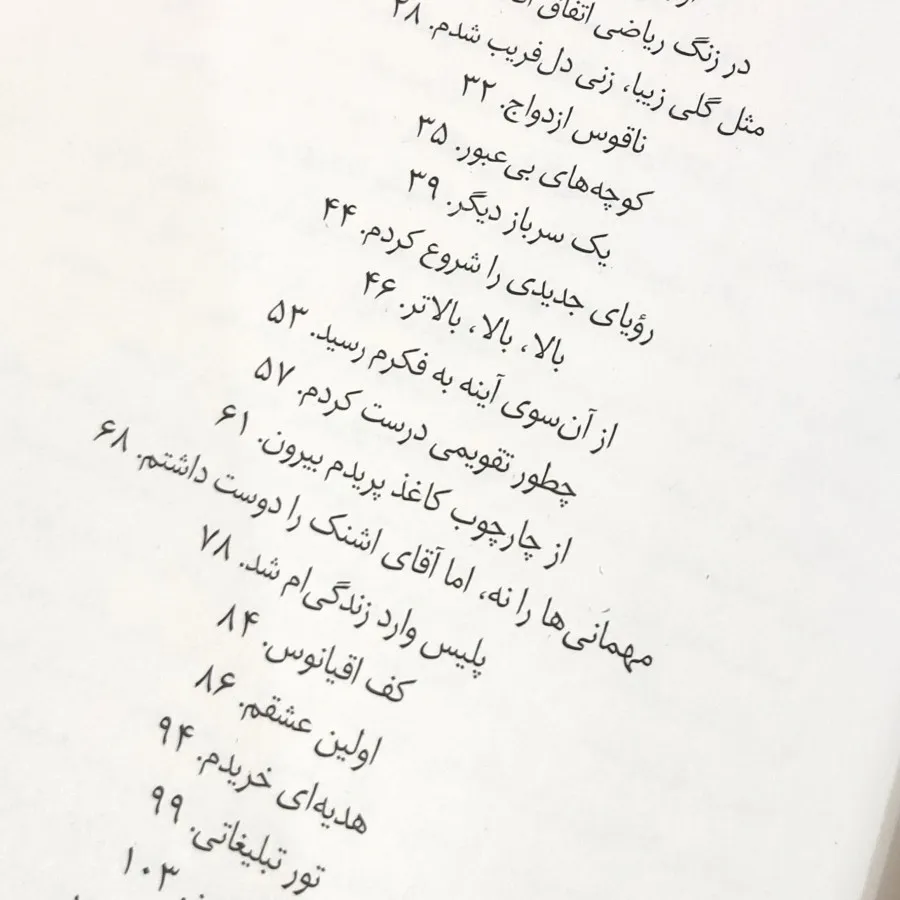 در زنگ ریاضی اتفاق
مثل گلی زیبا، زنی دل‌فریب شدم. ۲۸
ناقوس ازدواج. ۳۲
کوچه‌های بی‌عبور. ۳۵
یک سرباز دیگر. ۳۹
رؤیای جدیدی را شروع کردم. ۴۴
بالا، بالا، بالاتر. ۴۶
از آن‌سوی آینه به فکرم رسید. ۵۳
چطور تقویمی درست کردم. ۵۷
از چارچوب کاغذ پریدم بیرون. ۶۱
مهمانی‌ها را نه، اما آقای اشنک را دوست داشتم. ۶۸
پلیس وارد زندگی‌ام شد. ۷۸
کف اقیانوس. ۸۴
اولین عشقم. ۸۶
هدیه‌ای خریدم. ۹۴
تور تبلیغاتی. ۹۹
۱۰۳